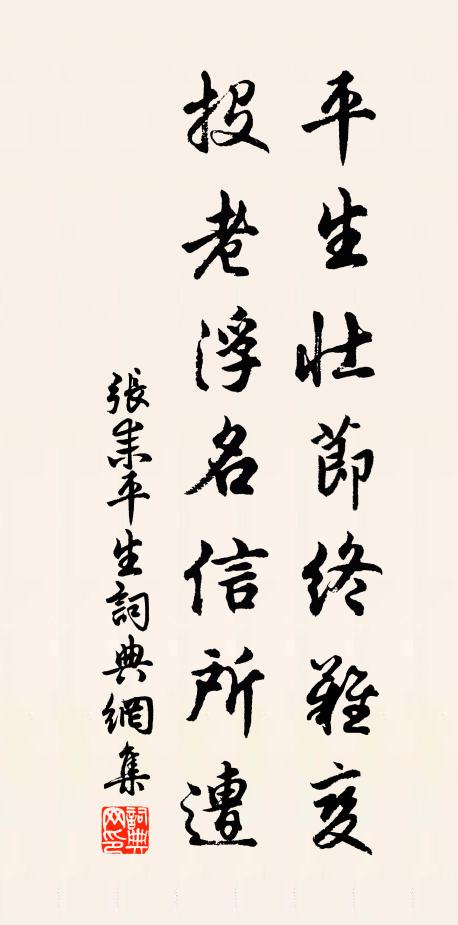 平生壯節終難變
投老浮名信所遭
張耒平生詞典網集
詞典网印